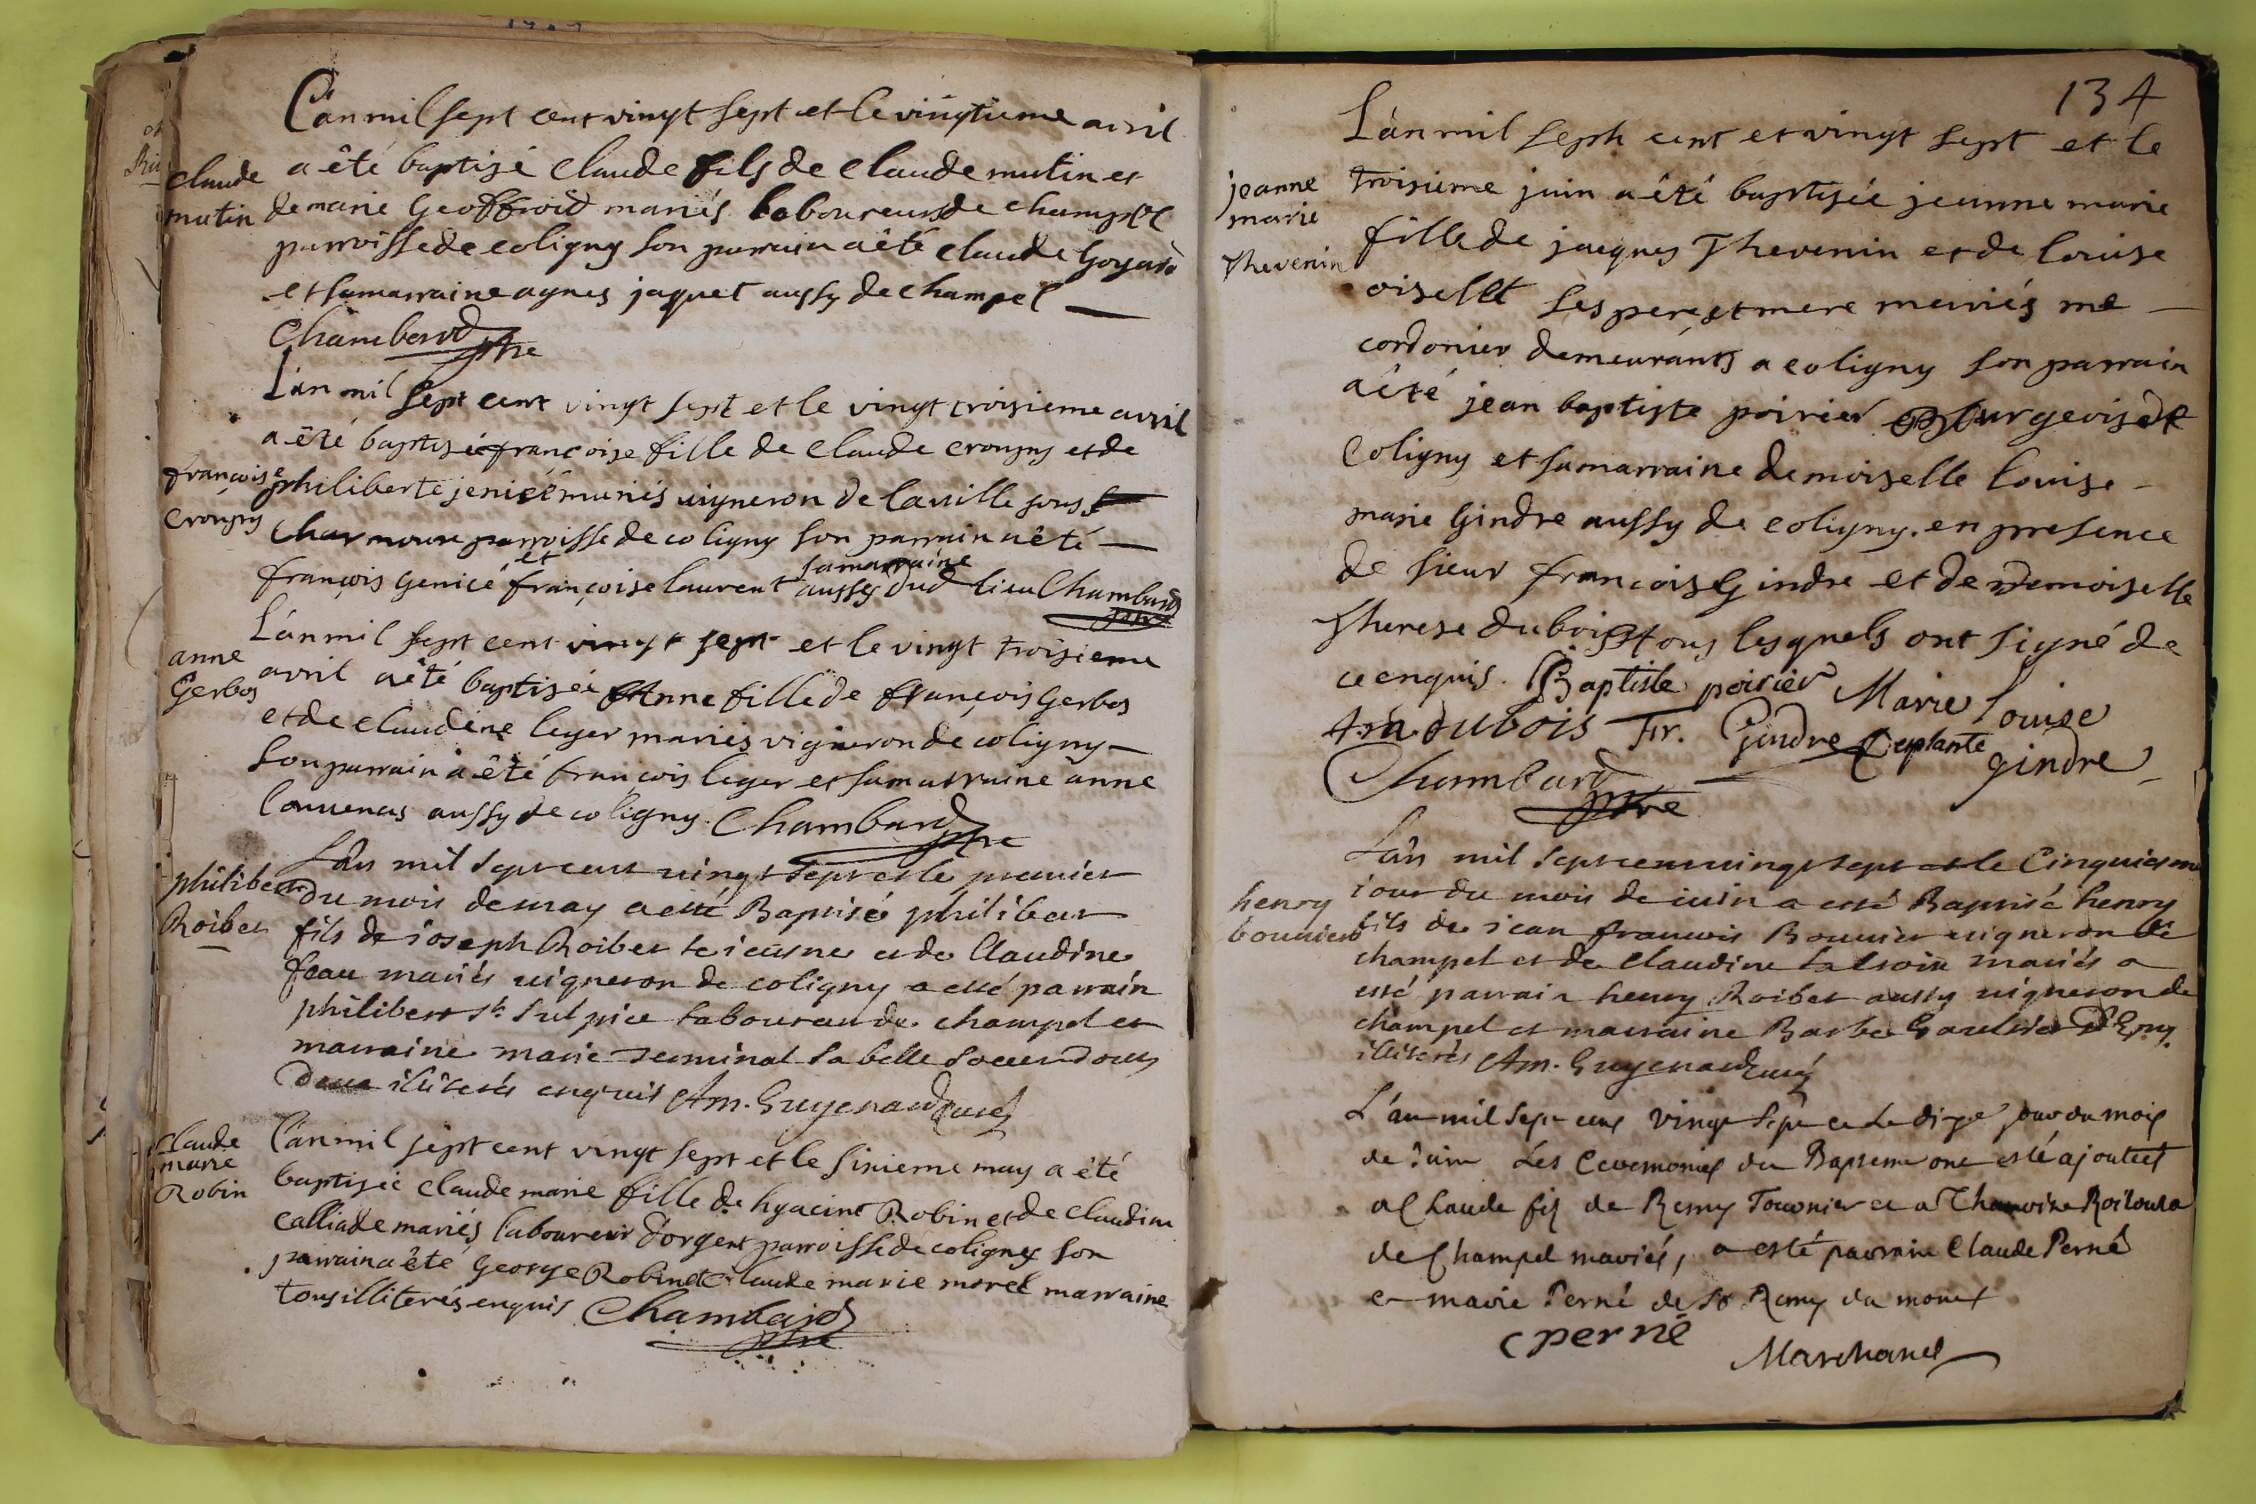 L'an mil sept cent vingt sept et le vingtieme avril
claude
mutin
a êté baptisé claude fils de claude mutin et
de marie Geoffroid mariés laboureurs de champel
parroisse de coligny son parrain a êté claude Goyard
et sa marraine agnes jaquet aussy de champel
Chambard ptre
L'an mil sept cent vingt sept et le vingt troisieme avril
françoise
crongny
a êté baptisée françoise fille de claude crongny et de
philiberte jenicé mariés vigneron de la ville sous
Charmoux parroisse de coligny son parrain a êté
françois genicé et françoise laurent sa marraine aussy dud lieu Chambard
ptre
anne
Gerbos
L'an mil sept cent vingt sept et le vingt troisieme
avril a êté baptisée Anne fille de françois Gerbos
et de claudine leger mariés vigneron de coligny
son parrain a êté françois leger et sa marraine anne
Convenas aussy de coligny. Chambard ptre
philibert
Roibet
L'an mil sept cent vingt sept et le premier
du mois de may a esté Baptisé philibert
fils de ioseph Roibet le ieusne et de Claudine
feau mariés vigneron de coligny a esté parrain
philibert st. Sulpice laboureur de champel et
marraine marie seminal sa belle soeur tous
deux illiterés enquis Am. Guyenard curé
claude
marie
Robin
L'an mil sept cent vingt sept et le sixieme may a êté
baptisée claude marie fille de hyacint Robin et de claudine
calliad mariés laboureur d'orgent parroisse de coligny son
parrain a êté George Robin et Claude marie morel marraine
tous illiterés enquis Chambard
ptre
134
jeanne
marie
Thevenin
L'an mil sept cent et vingt sept et le
troisieme juin a êté baptisée jeanne marie
fille de jacques Thevenin et de louise
oisellet ses pere et mere mariés me
cordonier demeurants a coligny son parrain
a êté jean baptiste poirier bourgeois de
Coligny et sa marraine demoiselle louise
marie Gindre aussy de coligny. en presence
de sieur françois Gindre et de Demoiselle
Therese dubois tous lesquels ont signé de
ce enquis. Baptiste poirier Marie Louise
gindre
dubois Fr. Gindre Deplante
Chambard
ptre
henry
bouvier
L'an mil sept cent vingt sept et le Cinquiesme
iour du mois de iuin a esté Baptisé henry
fils de iean francois Bouvier vigneron de
champel et de Claudine mariés a
esté parrain henry Roibet aussy vigneron de
champel et marraine Barbe
illiterés Am. Guyenard curé
L'an mil sept cent vingt sept et le dixe jour du mois
de Juin Les Ceremonies du Bapteme ont esté ajoutees
a Claude fils de Remy Tournier et a
de Champel mariés, a esté parrain Claude Perné
et marie Perné de St. Remy du mont
C perné
Marchand